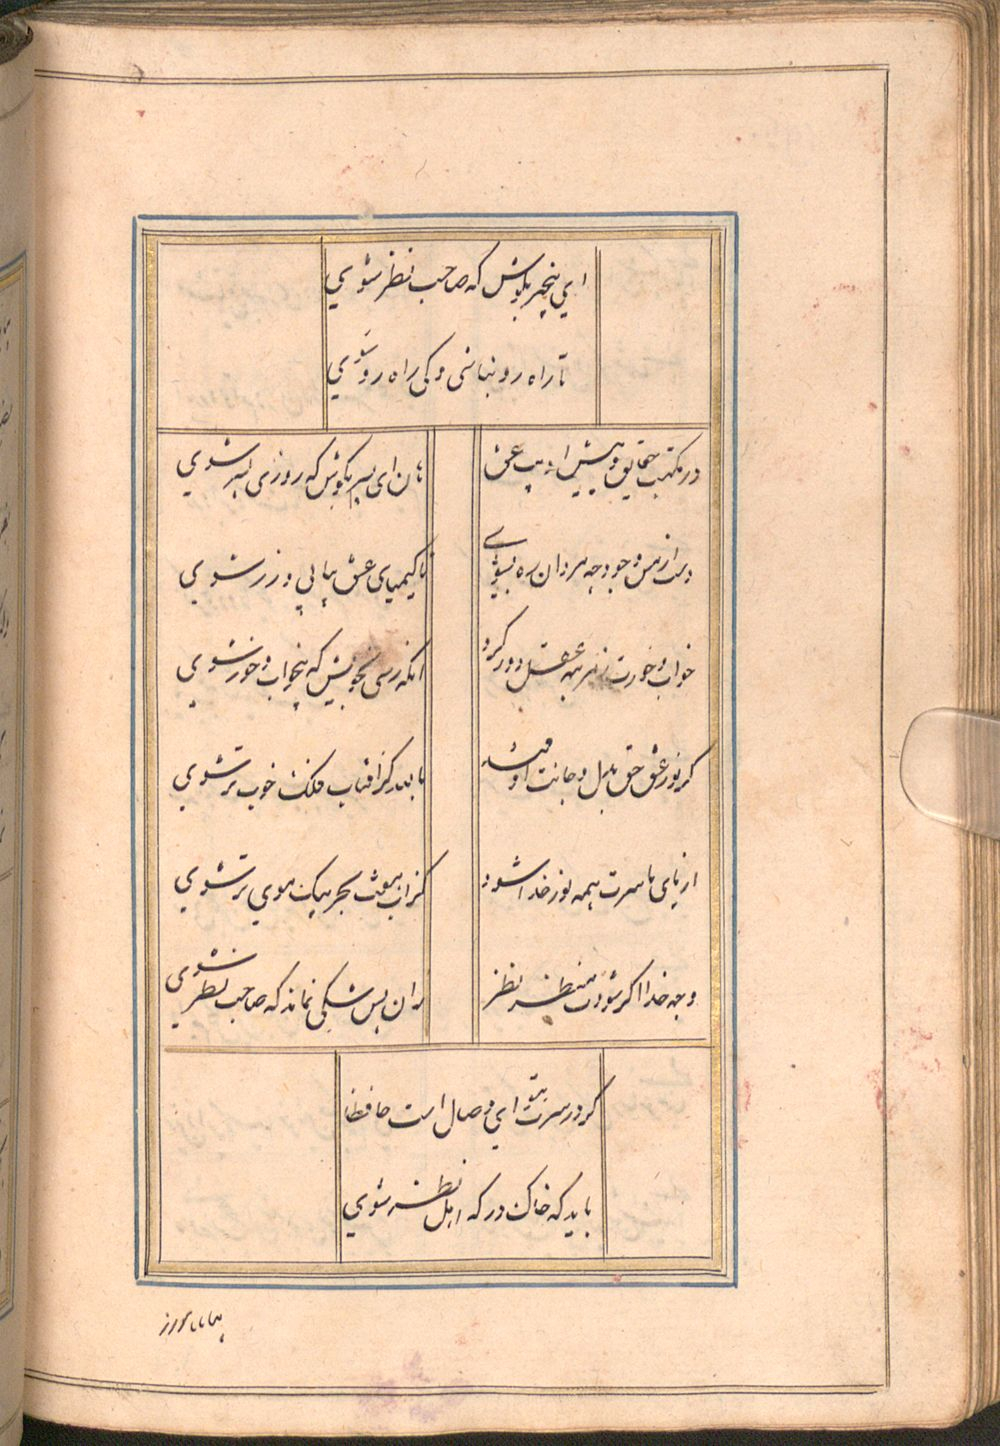 ای بیخبر بکوش که صاحب نظر شوی
تا راه رو نباشی و کی راه رو شوی
در مکتب حقایق و پیش ادیب عشق
هان ای پسر بکوش که روزی پدر شوی
دست از مس وجود چه مردان ره بشوی
تا کیمیای عشق بیابی و زر شوی
خواب و خورت ز مرتبه عقل دور کرد
آنکه رسی بخویش که بیخواب و خور شوی
گر نور عشق حق بدل و جانت اوفتد
بالله کز افتاب فلک خوب تر شوی
از پای تا سرت همه نور خدا شود
کز آب هفت بحر بیک موی تر شوی
وجه خدا اگر شودت منظر نظر
زان پس شکی نماند که صاحب نظر شوی
گر در سرت هوای وصال است حافظا
باید که خاک درکه اهل نظر شوی